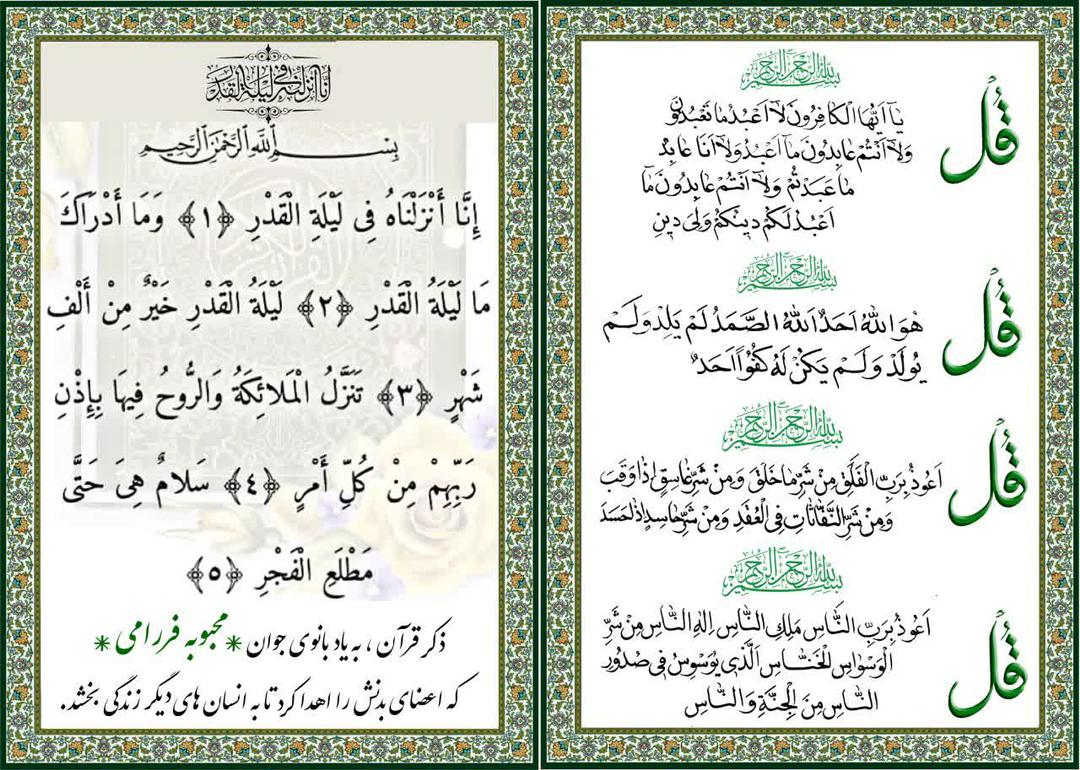 إنا أنزلناه في ليلة القدر
بسم الله الرحمن الرحيم
إِنَّا أَنْزَلْنَاهُ فِی لَیْلَةِ الْقَدْرِ ﴿١﴾ وَمَا أَدْرَاكَ
مَا لَیْلَةُ الْقَدْرِ ﴿٢﴾ لَیْلَةُ الْقَدْرِ خَیْرٌ مِنْ أَلْفِ
شَهْرٍ ﴿٣﴾ تَنَزَّلُ الْمَلائِكَةُ وَالرُّوحُ فِیهَا بِإِذْنِ
رَبِّهِمْ مِنْ كُلِّ أَمْرٍ ﴿٤﴾ سَلامٌ هِیَ حَتَّى
مَطْلَعِ الْفَجْرِ ﴿٥﴾
ذکر قرآن ، به یاد بانوی جوان * محبوبه فررامی *
که اعضای بدنش را اهدا کرد تا به انسان های دیگر زندگی بخشد.
بسم الله الرحمن الرحيم
قُل
يا اَيُّهَا الْكافِرُونَ لا اَعْبُدُ ما تَعْبُدُونَ
وَلا اَنْتُمْ عابِدُونَ ما اَعْبُدُ وَلا اَنا عابِدٌ
ما عَبَدْتُمْ وَلا اَنْتُمْ عابِدُونَ ما
اَعْبُدُ لَكُمْ دينُكُمْ وَلِيَ دينِ
بسم الله الرحمن الرحيم
قُل
هُوَ اللهُ اَحَدٌ اَللهُ الصَّمَدُ لَمْ يَلِدْ وَلَمْ
يُولَدْ وَلَمْ يَكُنْ لَهُ كُفُوًا اَحَدٌ
بسم الله الرحمن الرحيم
قُل
اَعُوذُ بِرَبِّ الْفَلَقِ مِنْ شَرِّ ما خَلَقَ وَمِنْ شَرِّ غاسِقٍ اِذا وَقَبَ
وَمِنْ شَرِّ النَّفّاثاتِ فِي الْعُقَدِ وَمِنْ شَرِّ حاسِدٍ اِذا حَسَدَ
بسم الله الرحمن الرحيم
قُل
اَعُوذُ بِرَبِّ النّاسِ مَلِكِ النّاسِ اِلهِ النّاسِ مِنْ شَرِّ
الْوَسْواسِ الْخَنّاسِ اَلَّذي يُوَسْوِسُ في صُدُورِ
النّاسِ مِنَ الْجِنَّةِ وَالنّاسِ